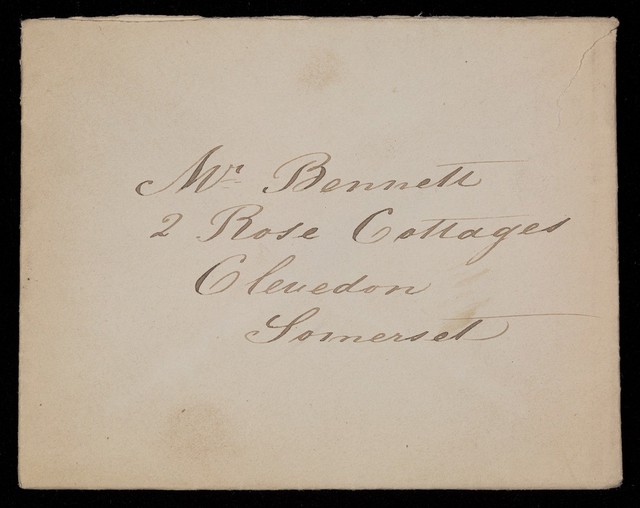 Mr. Bennett
2 Rose Cottages
Clevedon
Somerset